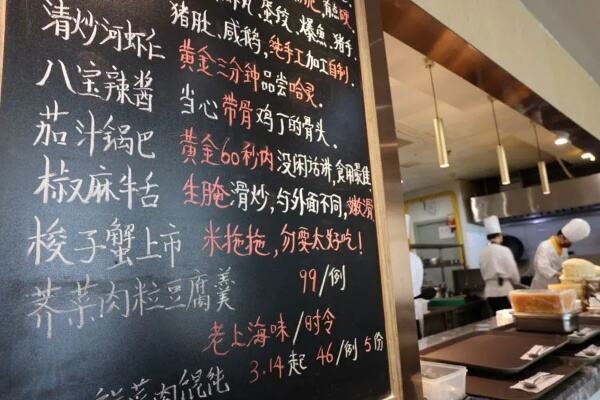 蛋饺、爆鱼、猪手、
猪肚、咸鹅,纯手工加工自制.
清炒河虾仁 黄金三分钟品尝哈灵.
八宝辣酱 当心带骨鸡丁的骨头.
茄汁锅巴 黄金60秒内没闲话讲,食用最佳
椒麻牛舌 生腌滑炒,与外面不同,嫩滑
梭子蟹上市 米拖拖,勿要太好吃!
99/例
荠菜肉粒豆腐羹
老上海味/时令
菜肉馄饨 3.14起 46/例 5份